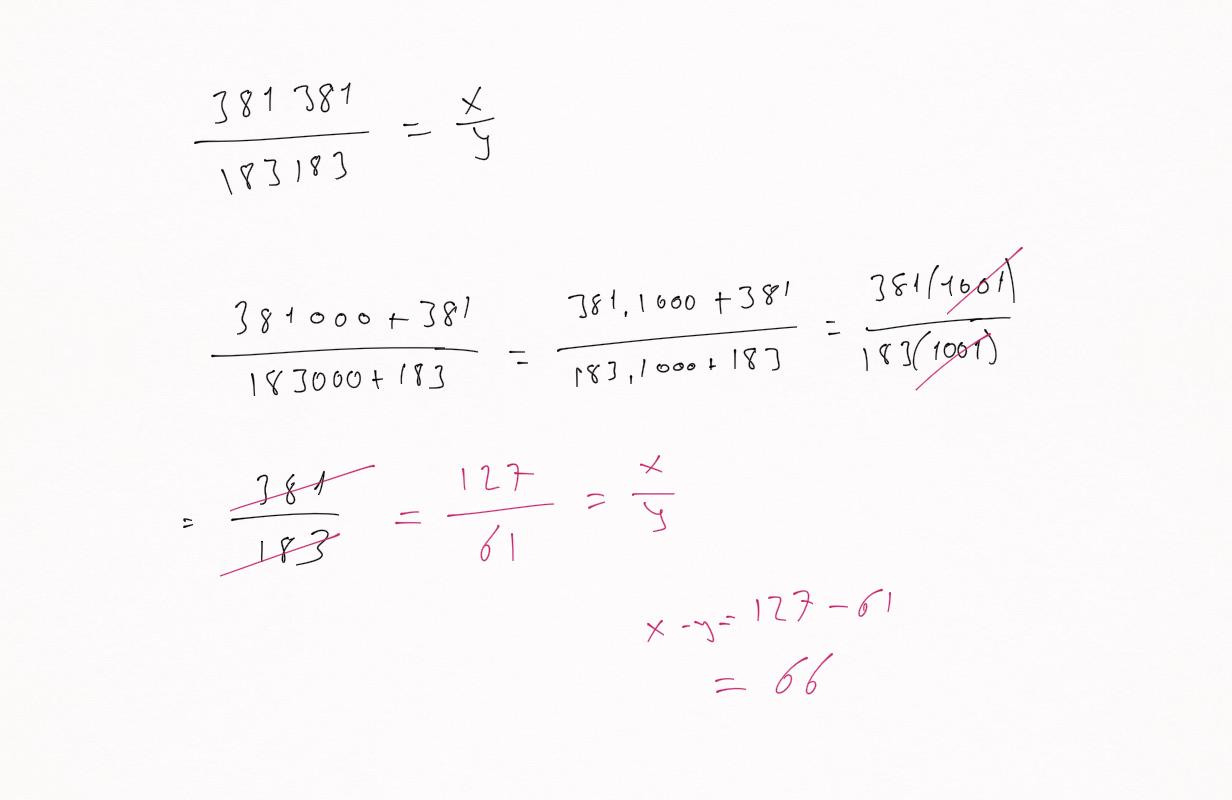 381 381 / 183 183 = x / y
381 000 + 381 / 183000 + 183 = 381 . 1000 + 381 / 183 . 1000 + 183 = 381(1001) / 183(1001)
= 381 / 183 = 127 / 61 = x / y
x - y = 127 - 61
= 66